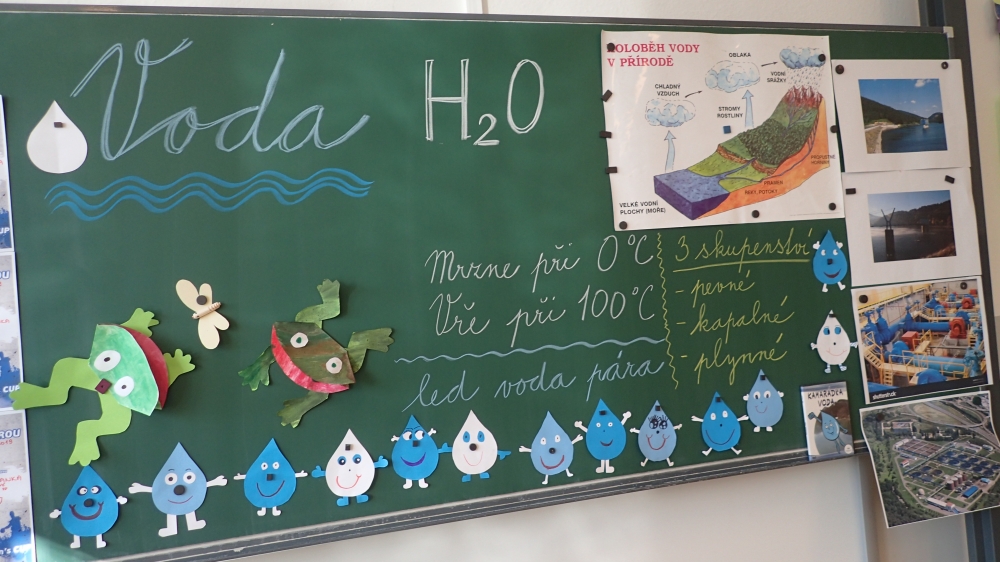 Voda
H2O
KOLOBĚH VODY
V PŘÍRODĚ
OBLAKA
VODNÍ
SRÁŽKY
CHLADNÝ
VZDUCH
STROMY
ROSTLINY
PRAMEN
ŘEKY, POTOKY
VELKÉ VODNÍ
PLOCHY (MOŘE)
Mrzne při 0°C
Vře při 100°C
led voda pára
3 skupenství
- pevné
- kapalné
- plynné
KAMARÁDKA
VODA
shutterstock
ROU
CUP
ROU
CUP